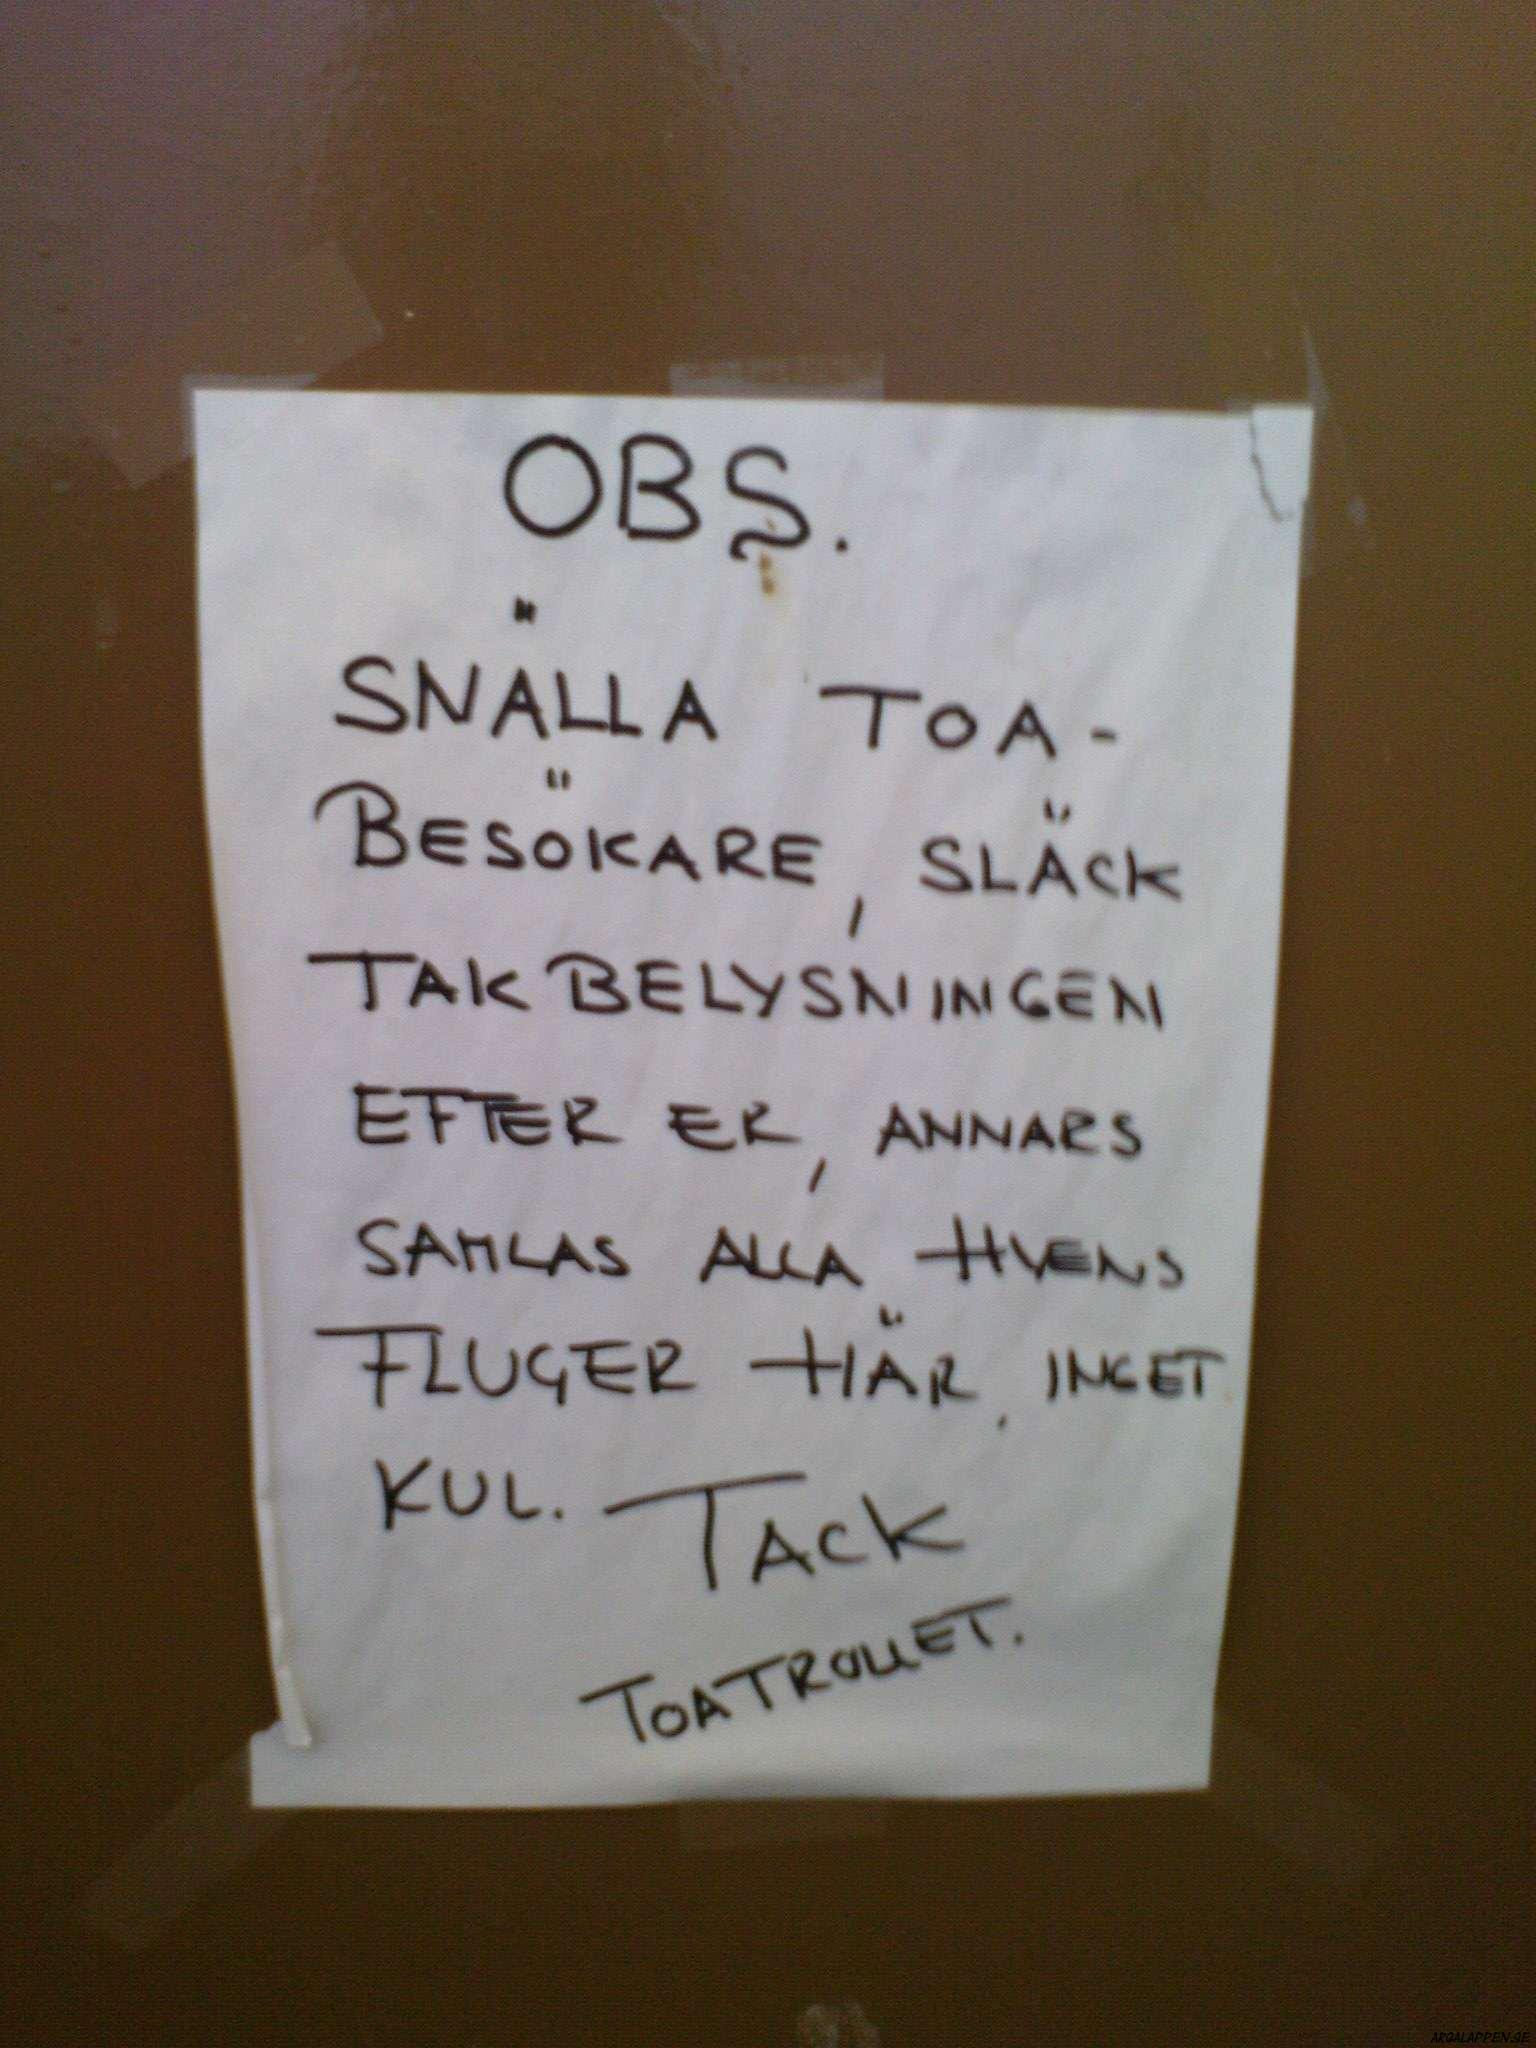 OBS.
SNÄLLA TOA-
BESÖKARE, SLÄCK
TAKBELYSNINGEN
EFTER ER, ANNARS
SAMLAS ALLA HVENS
FLUGER HÄR, INGET
KUL. TACK
TOATROLLET.
ARGALAPPEN.SE